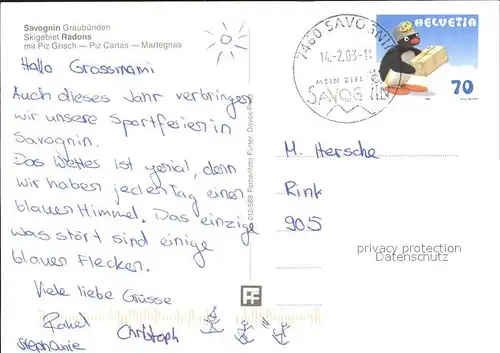 Savognin Graubünden
Skigebiet Radons
mit Piz Grisch – Piz Cartas – Martegnas
Hallo Grossmami
Auch dieses Jahr verbringen
wir unsere Sportferien in
Savognin.
Das Wetter ist genial, denn
wir haben jeden Tag einen
blauen Himmel. Das einzige
was stört sind einige
blauen Flecken.
Viele liebe Grüsse
Rahel
Christoph
Stephanie
012-588 Farbenfoto Furter · Davos-Platz
7460 SAVOGNIN
14.-2.03-1
MEIN ZIEL
SAVOGNIN
HELVETIA
70
M. Hersche
Rink
905
privacy protection
Datenschutz